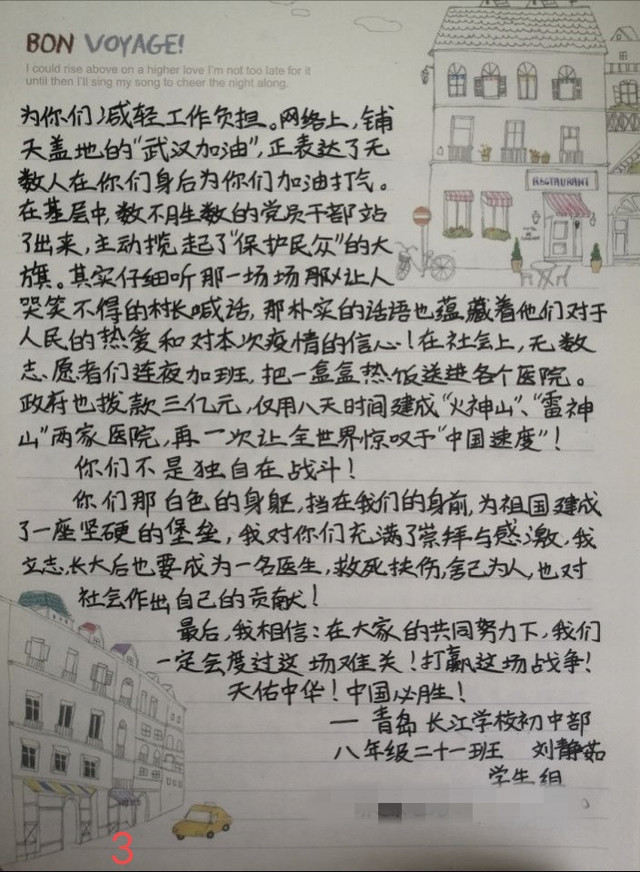 BON VOYAGE!
I could rise above on a higher love I'm not too late for it
until then I'll sing my song to cheer the night along.
为你们减轻工作负担。网络上,铺
天盖地的“武汉加油”,正表达了无
数人在你们身后为你们加油打气。
在基层中,数不胜数的党员干部站
了出来,主动揽起了“保护民众”的大
旗。其实仔细听那一场场那以让人
哭笑不得的村长喊话,那朴实的话语也蕴藏着他们对于
人民的热爱和对本次疫情的信心!在社会上,无数
志愿者们连夜加班,把一盒盒热饭送进各个医院。
政府也拨款三亿元,仅用八天时间建成“火神山”、“雷神
山”两家医院,再一次让全世界惊叹于“中国速度”!
你们不是独自在战斗!
你们那白色的身躯,挡在我们的身前,为祖国建成
了一座坚硬的堡垒,我对你们充满了崇拜与感激,我
立志,长大后也要成为一名医生,救死扶伤,舍己为人,也对
社会作出自己的贡献!
最后,我相信:在大家的共同努力下,我们
一定会度过这场难关!打赢这场战争!
天佑中华!中国必胜!
— 青岛长江学校初中部
八年级二十一班 刘静茹
学生组
RESTAURANT
3